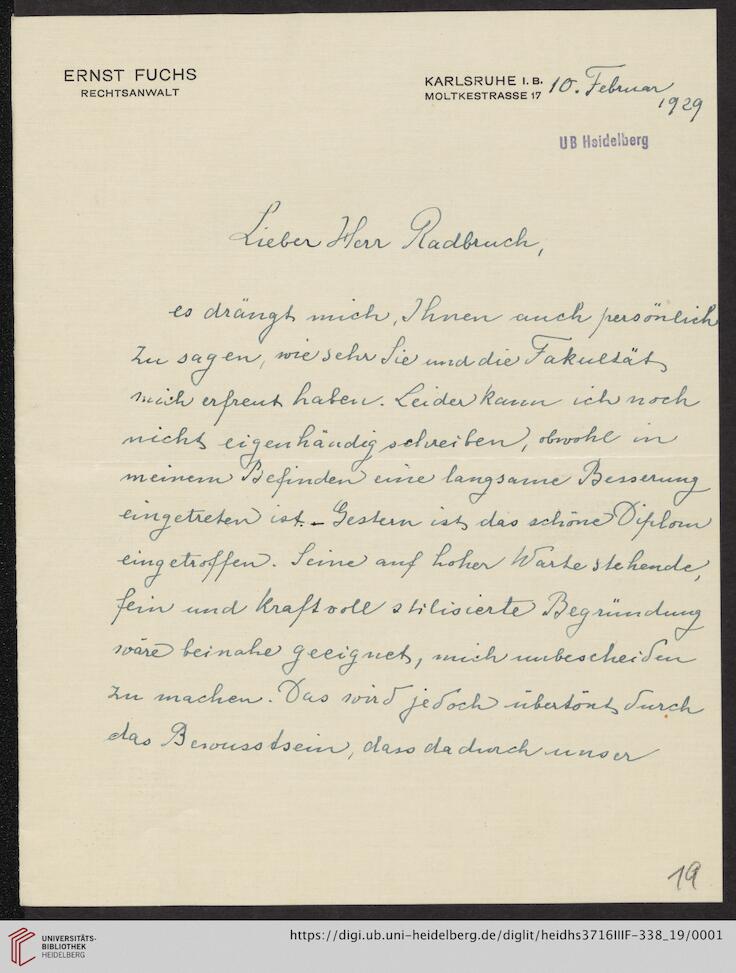 ERNST FUCHS
RECHTSANWALT
KARLSRUHE I. B.
MOLTKESTRASSE 17
10. Februar
1929
UB Heidelberg
Lieber Herr Radbruch,
es drängt mich, Ihnen auch persönlich
zu sagen, wie sehr Sie und die Fakultät
mich erfreut haben. Leider kann ich noch
nicht eigenhändig schreiben, obwohl in
meinem Befinden eine langsame Besserung
eingetreten ist. – Gestern ist das schöne Diplom
eingetroffen. Seine auf hoher Warte stehende,
fein und kraftvoll stilisierte Begründung
wäre beinahe geeignet, mich unbescheiden
zu machen. Das wird jedoch übertönt durch
das Bewusstsein, dass dadurch unser
19
UNIVERSITÄTS-
BIBLIOTHEK
HEIDELBERG
https://digi.ub.uni-heidelberg.de/diglit/heidhs3716IIIF-338_19/0001